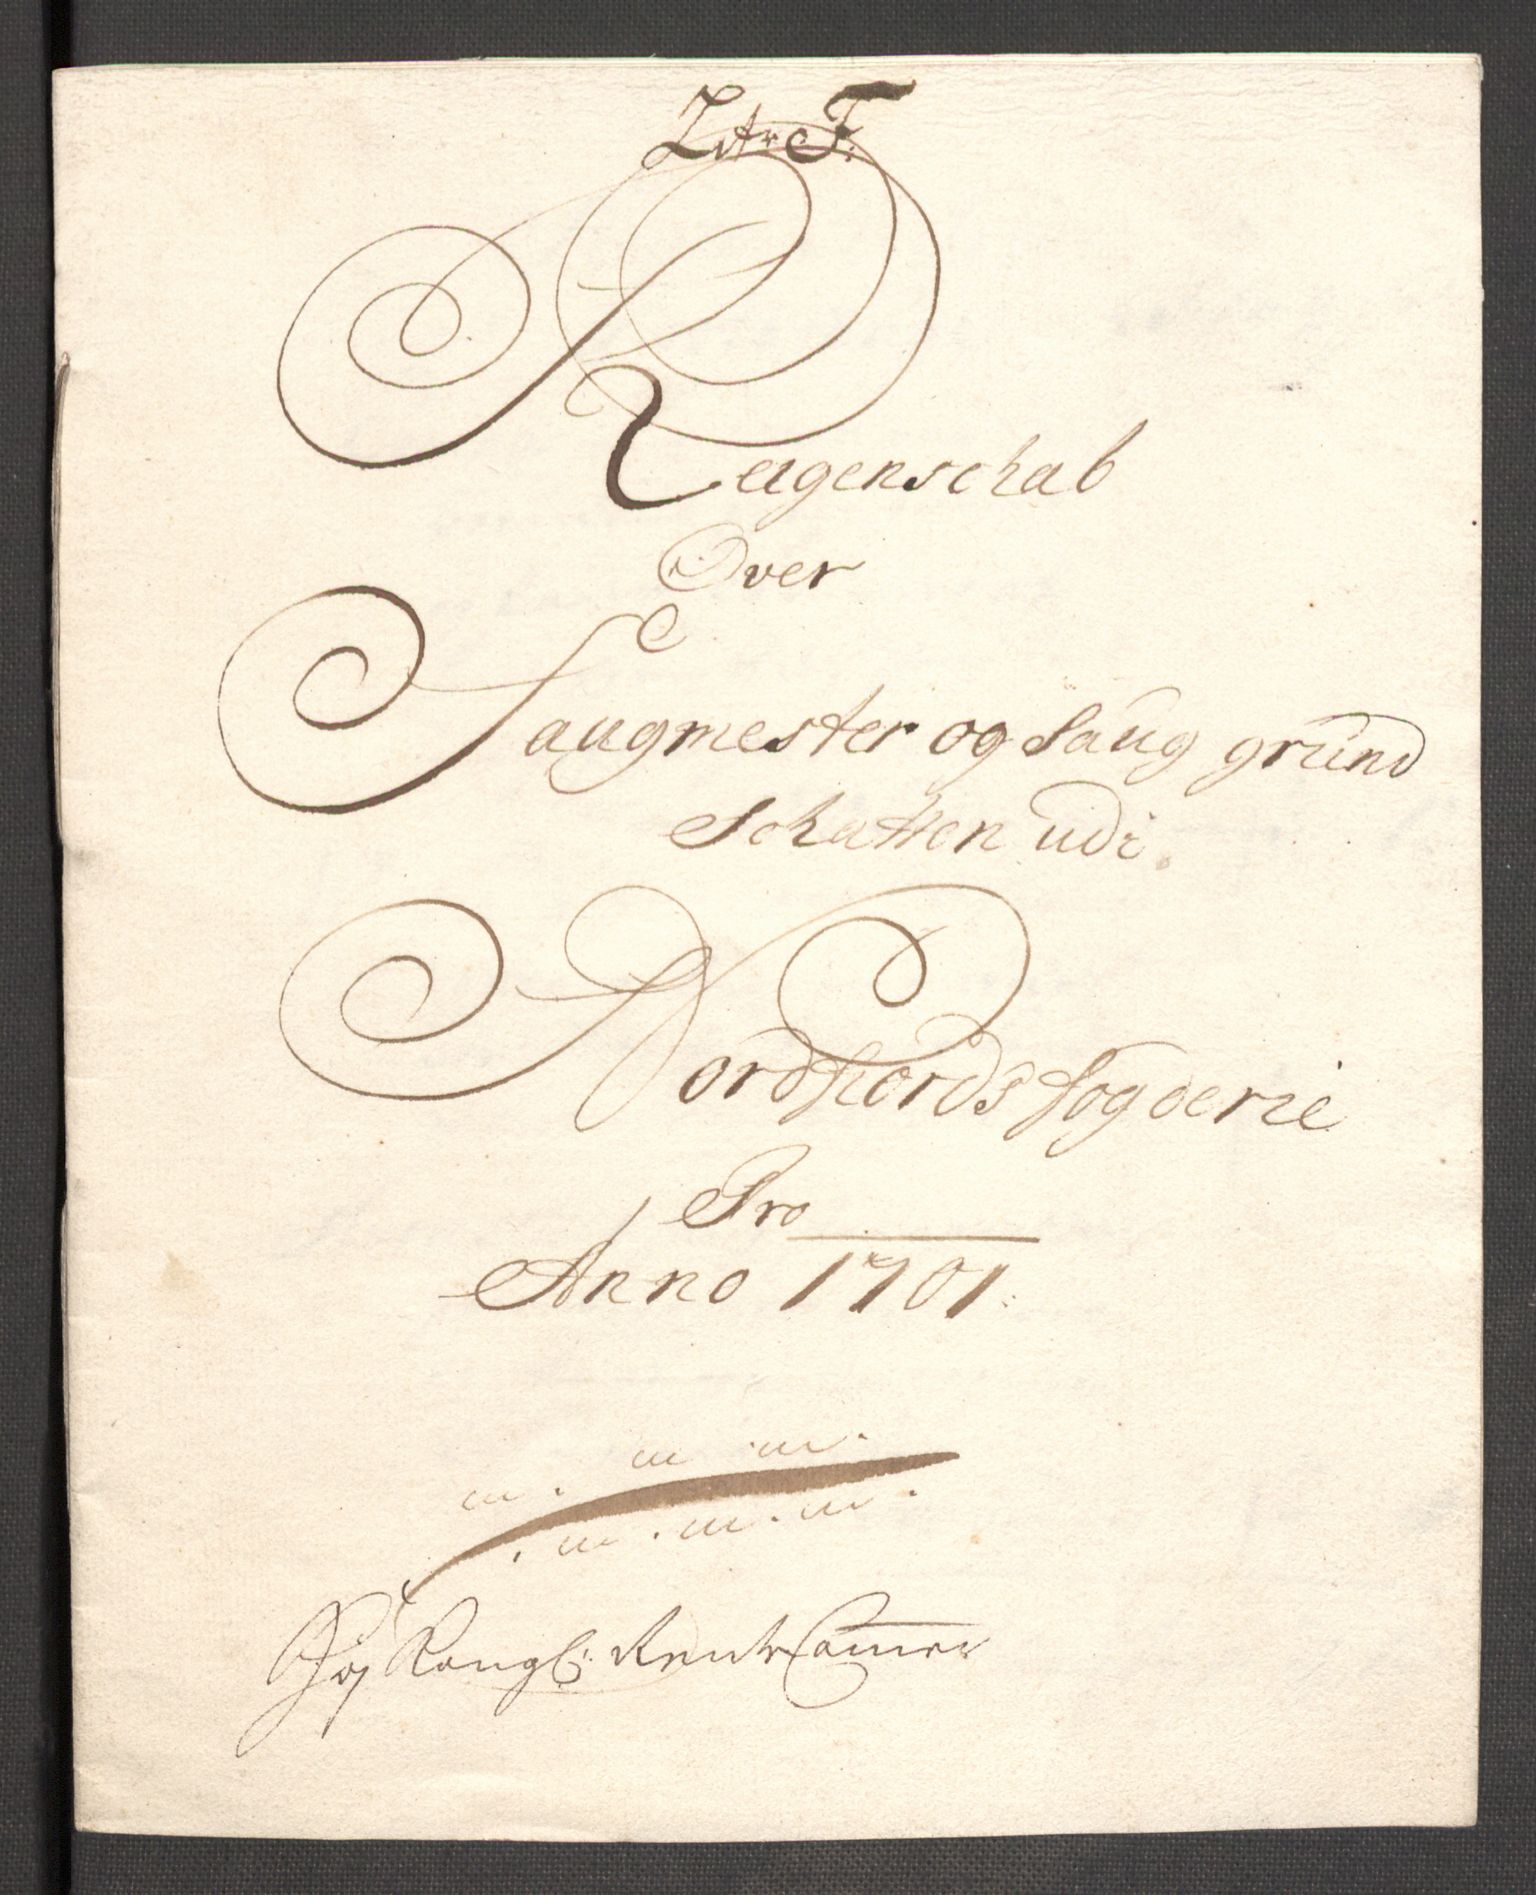 Litr F:
Reigenschab
Over
Saugmester og Saug grund
Schatten udi
Nordfiords fogderie
Pro
Anno 1701.
Kongl: Rente Cammer